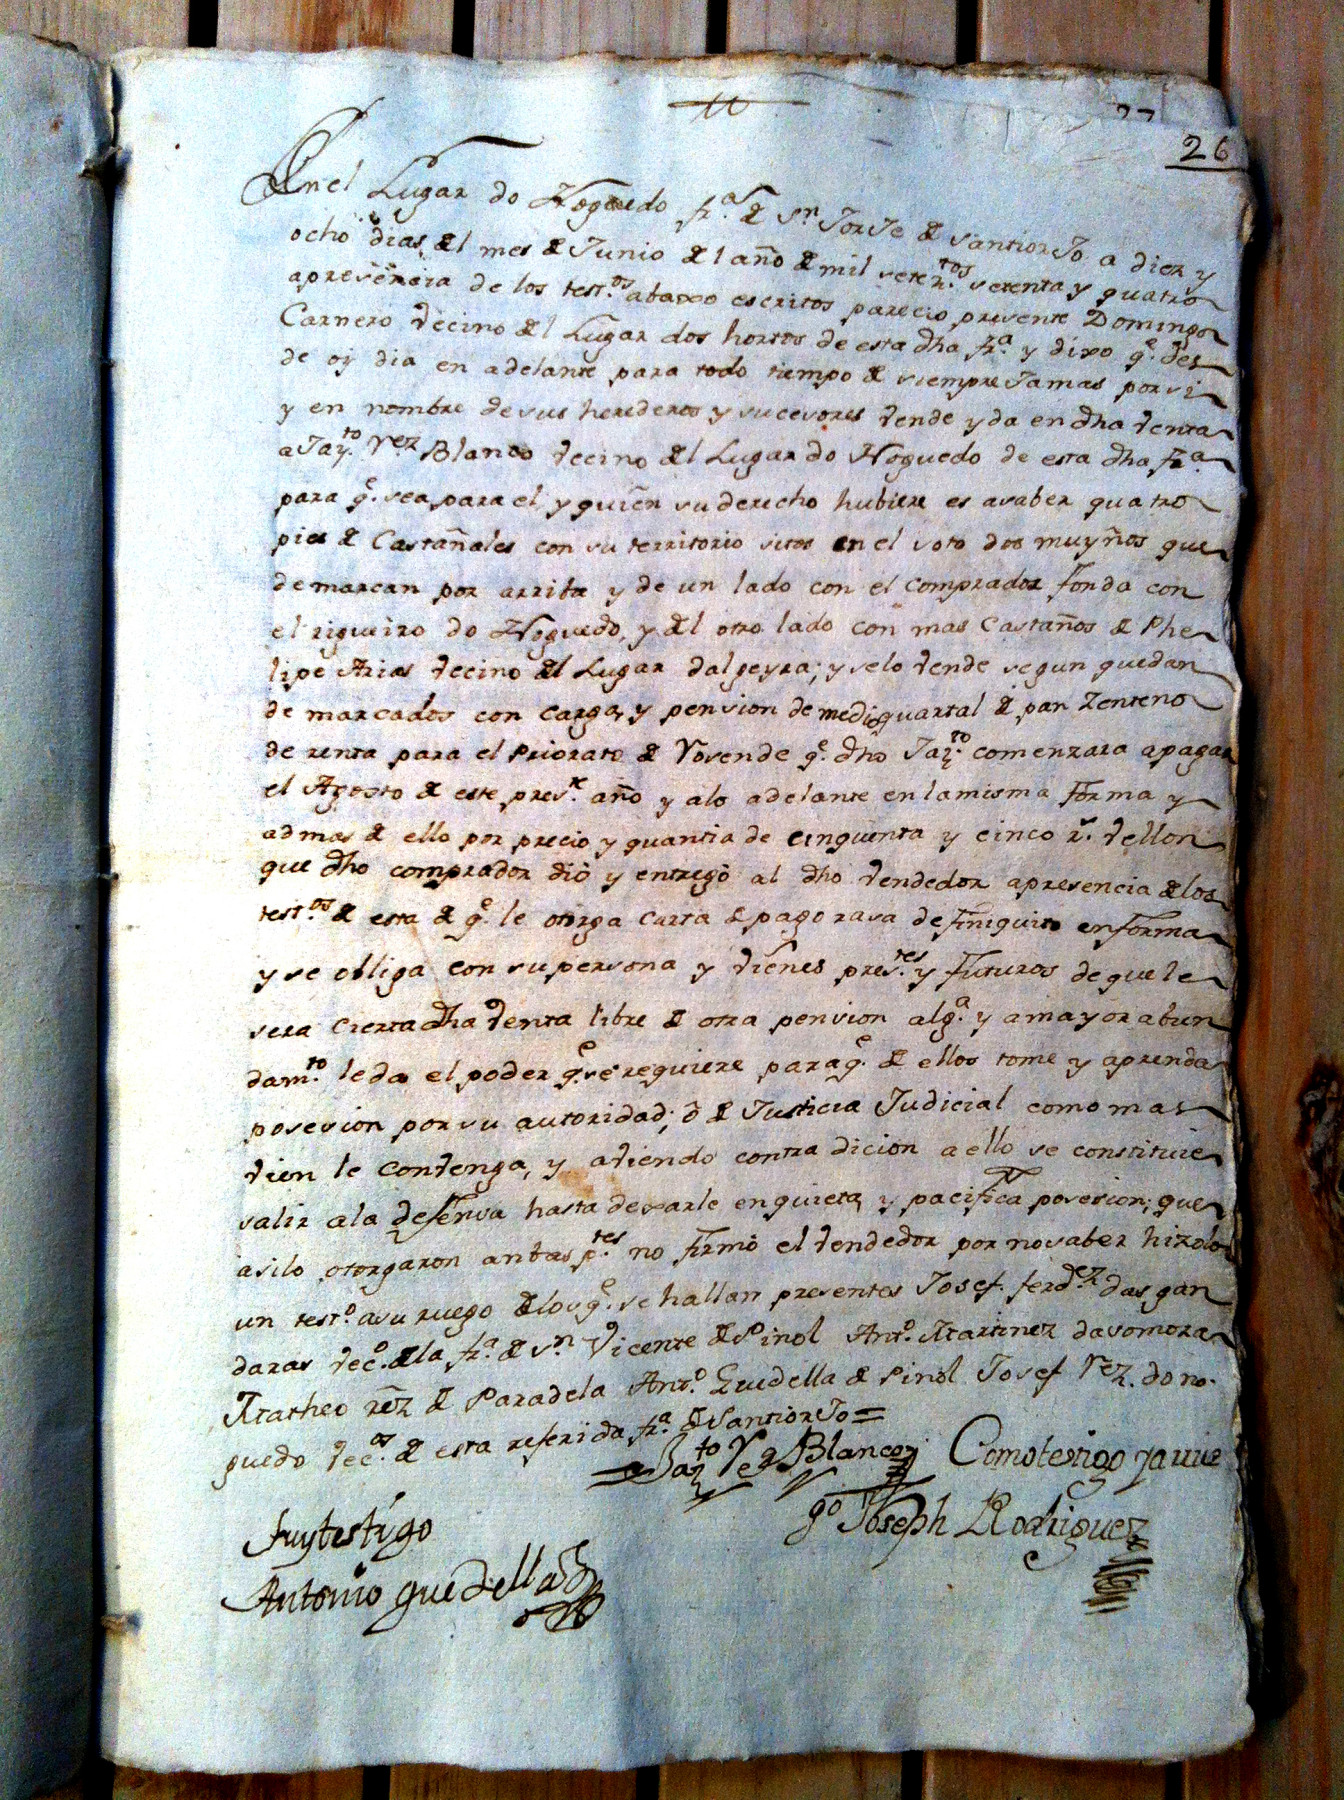 27
26
En el Lugar do Noguedo fr.ª de Sn Jorje de Santiorjo a diez y
ocho dias del mes de Junio del año de mil setez.tos setenta y quatro
apresencia de los test.os abaxo escritos parecio presente Domingo
Carnero vecino del Lugar dos hortos de esta dha fr.ª y dixo q.e des
de oy dia en adelante para todo tiempo de siempre Jamas por si
y en nombre de sus herederos y sucesores vende y da en dha venta
a Jay.to Vez Blanco vecino del Lugar do Noguedo de esta dha fr.ª
para q.e sea para el y quien su derecho hubiere es asaber quatro
pies de Castañales con su territorio sitos en el soto dos muyños que
demarcan por arriba y de un lado con el comprador fonda con
el rigueiro do Noguedo, y del otro lado con mas Castaños de Phe
lipe Arias vecino del Lugar dalgeyra; y se lo vende segun quedan
demarcados con carga, y pension de medio quartal de pan Zenteno
de renta para el Priorato de Rosende q.e dho Jaz.to comenzara apagar
el Agosto de este pres.te año y alo adelante en la misma forma y
admas de ello por precio y quantia de cinquenta y cinco r.s vellon
que dho comprador dió y entregó al dho vendedor apresencia de los
test.os de esta de q.e le otorga carta de pago rasa definiquito en forma
y se obliga con su persona y vienes pres.tes y futuros de que le
sera cierta dha venta libre de otra pension alg.ª y a mayor abun
dam.to le da el poder q.e se requiere para q.e de ellos tome y aprenda
posesion por su autoridad; ó de Justicia Judicial como mas
vien le convenga, y aviendo contra dicion a ello se constituie
salir ala defensa hasta dexarle en quieta, y pacifica posesion; que
asilo otorgaron anbas p.tes no firmó el vendedor por no saber hizolo
un test.o asu ruego de los q.e se hallan presentes Josef ferd.ez das gan
daras vec.o de la fr.ª de Sn Vicente de Pinol Ant.o Martinez dasomoza
Matheo rez de Paradela Ant.o Guedella de Pinol Josef Vez. do no-
guedo vec.os de esta referida fr.ª de Santiorjo =
Jaz.to Vez Blanco Como testigo y a rue
go Joseph Rodriguez
fuy testigo
Antonio guedella